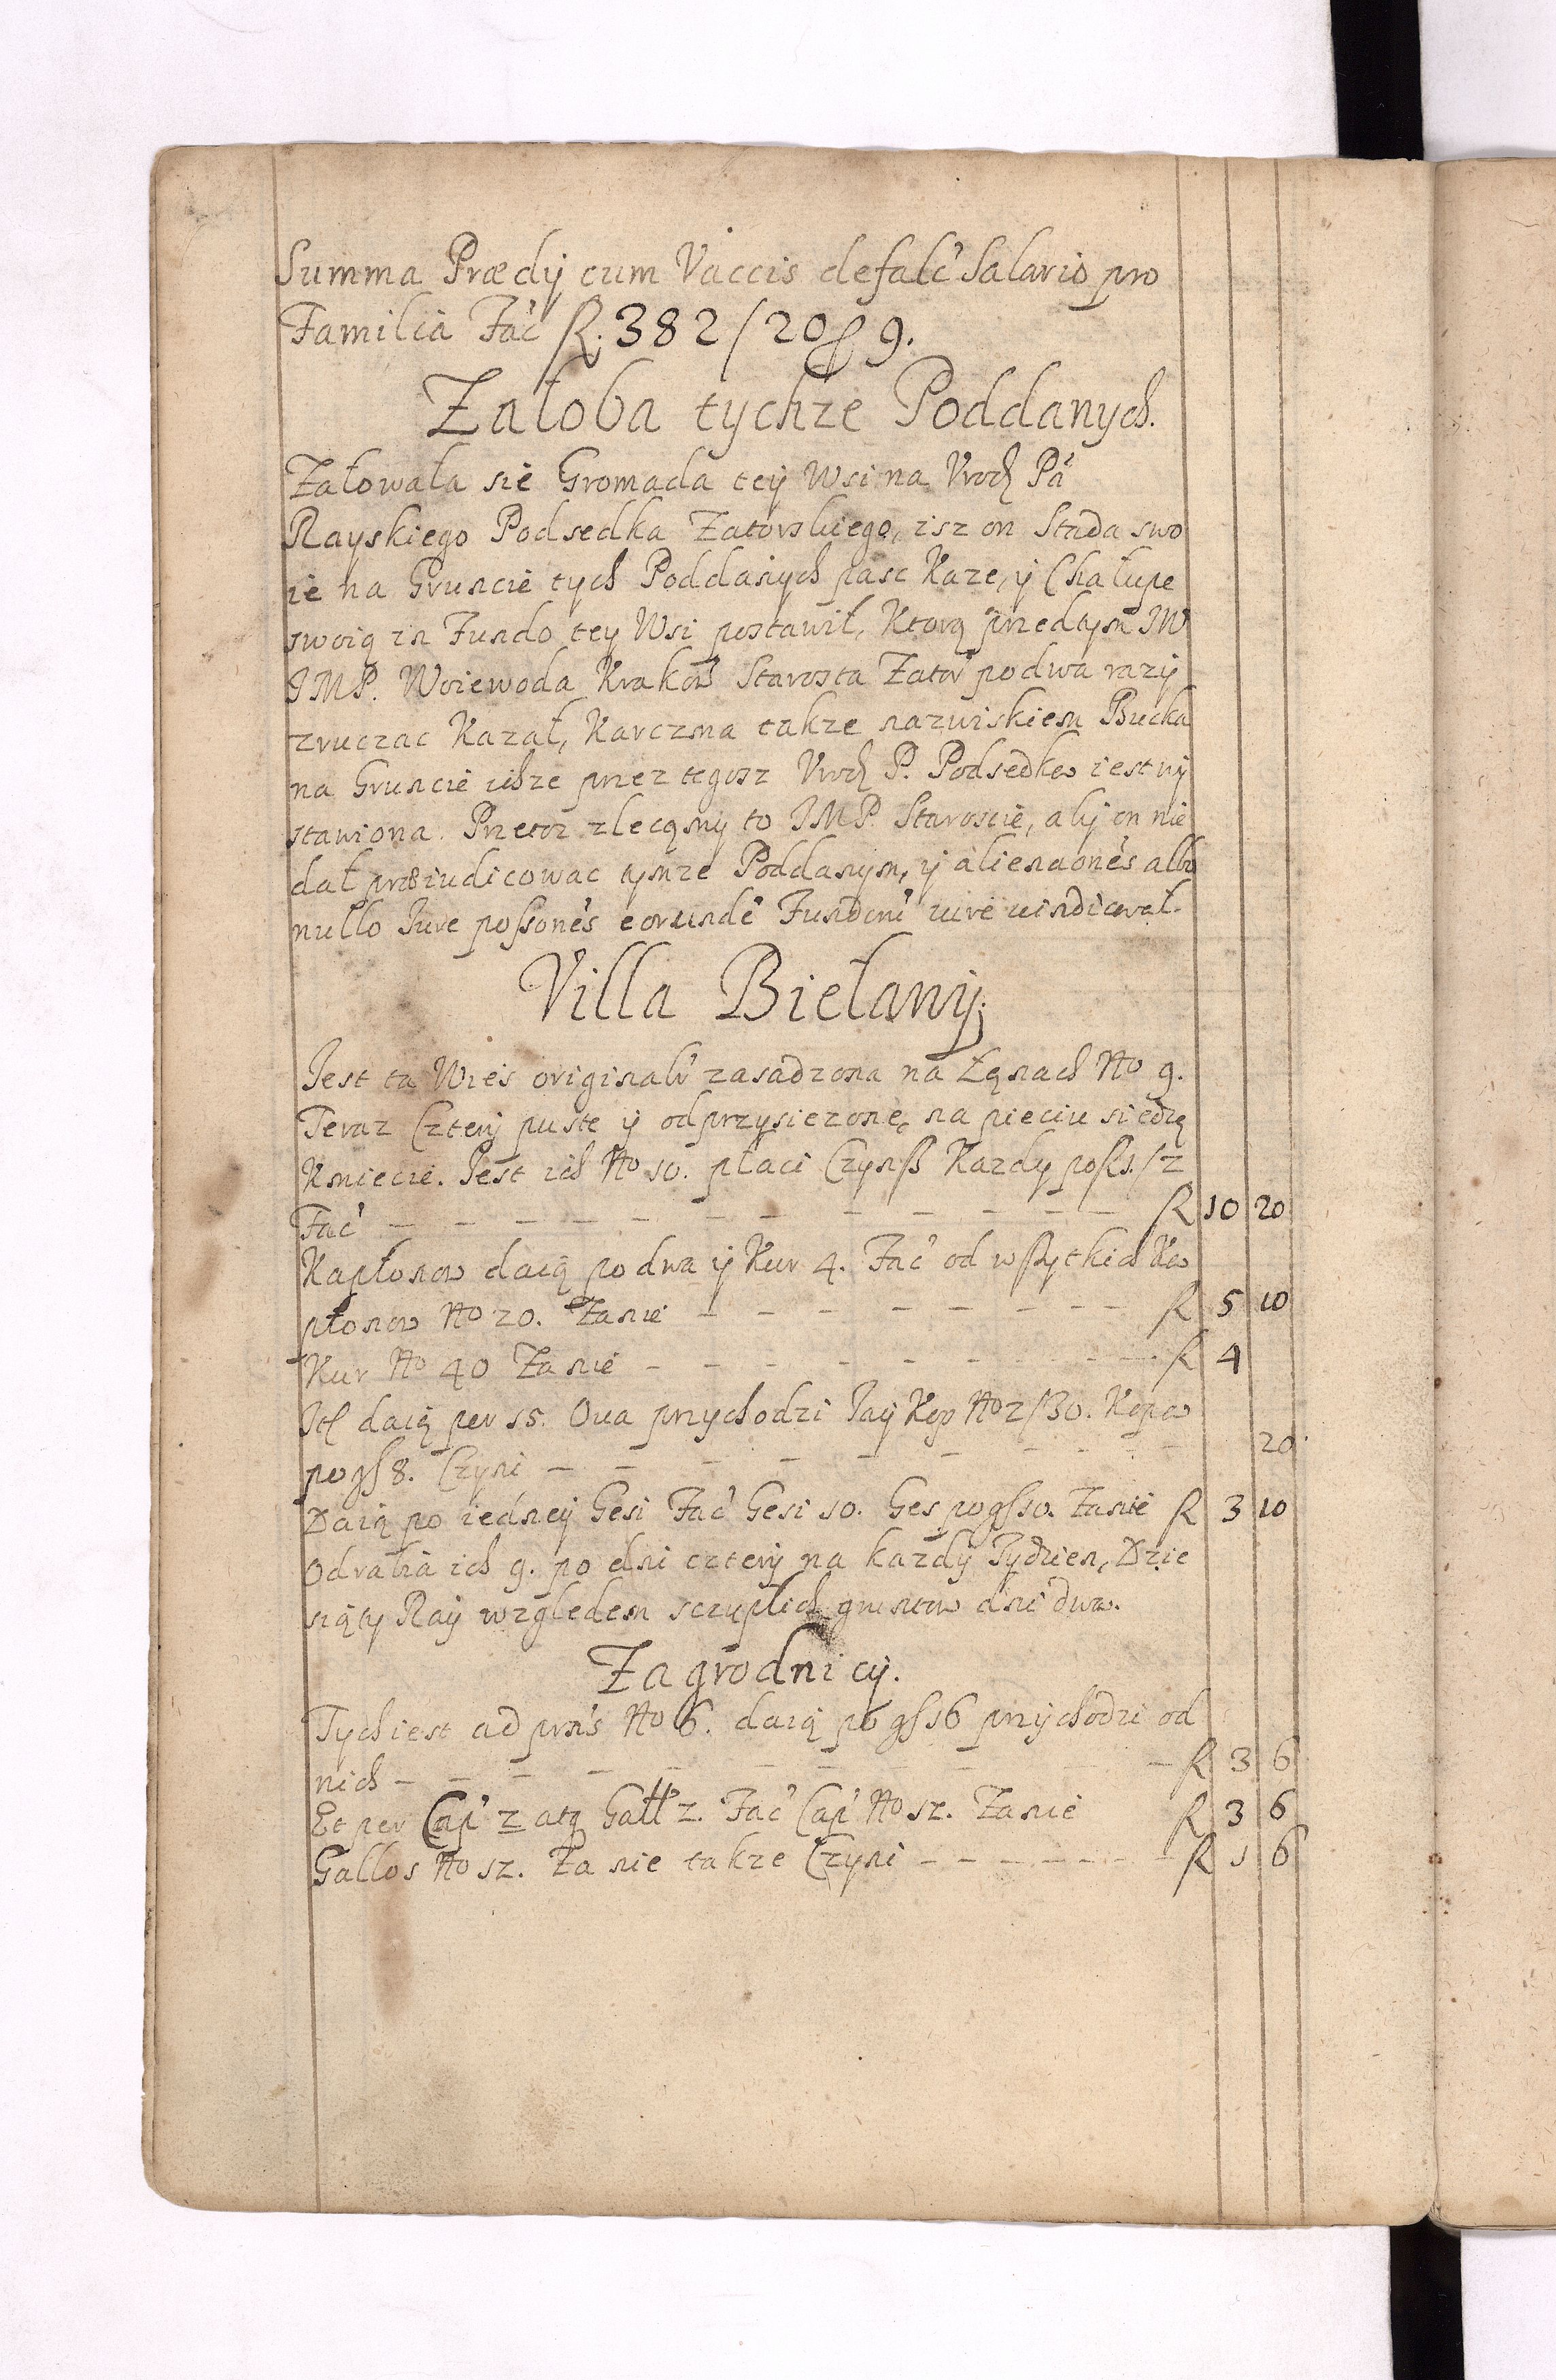 Summa Prædij cum Vaccis defalc' Salario pro
Familia Fac' R. 382/20 ₰ 9.
Załoba tychze Poddanych.
Załowała sie Gromada tey Wsi na Vrodz Pa
Rayskiego Podsedka Zatorskiego, isz on Stada swo
ie na Gruncie tych Poddanych pasc Kaze, ij Chałupe
swoią in Fundo tey Wsi postawił, Ktorą przedtym JW
JMP. Woiewoda Krakow Starosta Zator po dwa razij
zruczac Kazał, Karczma takze nazwiskiem Bucka
na Gruncie ichze przez tegosz Vrodz P. Podsedka iest wij
stawiona. Przetoz zlecamy to JMP. Staroscie, abij on nie
dał præiudicowac tymze Poddanym, ij alienaones albo
nullo Jure possones eorunde Fundoru iure uindicował.
Villa Bielanij;
Jest ta Wies originalr zasadzona na Łąnach No 9.
Teraz Czterij puste ij odprzysiezone, na pieciu siedzą
Kmiecie. Jest ich No 10. płaci Czynss Kazdy po R 1./2
Fac' — — — R 10 20
Kapłonow daią po dwa ij Kur 4. Fac' od wssytkich Ka
płonow No 20. Za nie — — — R 5 10
Kur No 40 Za nie — — — R 4
Itt daią per 15. Oua przychodzi Jaij Kop No 2/30. Kopa
po gs 8. Czyni — — — 20
Daią po iednej Gesi Fac' Gesi 10. Ges po gs 10. Za nie R 3 10
Odrabia ich 9. po dni czterij na kazdij Tydzien, Dzie
siąty Raij względem sczupłich gruntow dni dwa.
Zagrodnicij.
Tych iest ad prns No 6. daią po gs 16 przijchodzi od
nich — — — R 3 6
Et per Cap' 2 atq Gall' 2. Fac' Cap' No 12. Za nie R 3 6
Gallos No 12. Za nie takze Czyni — — — R 1 6